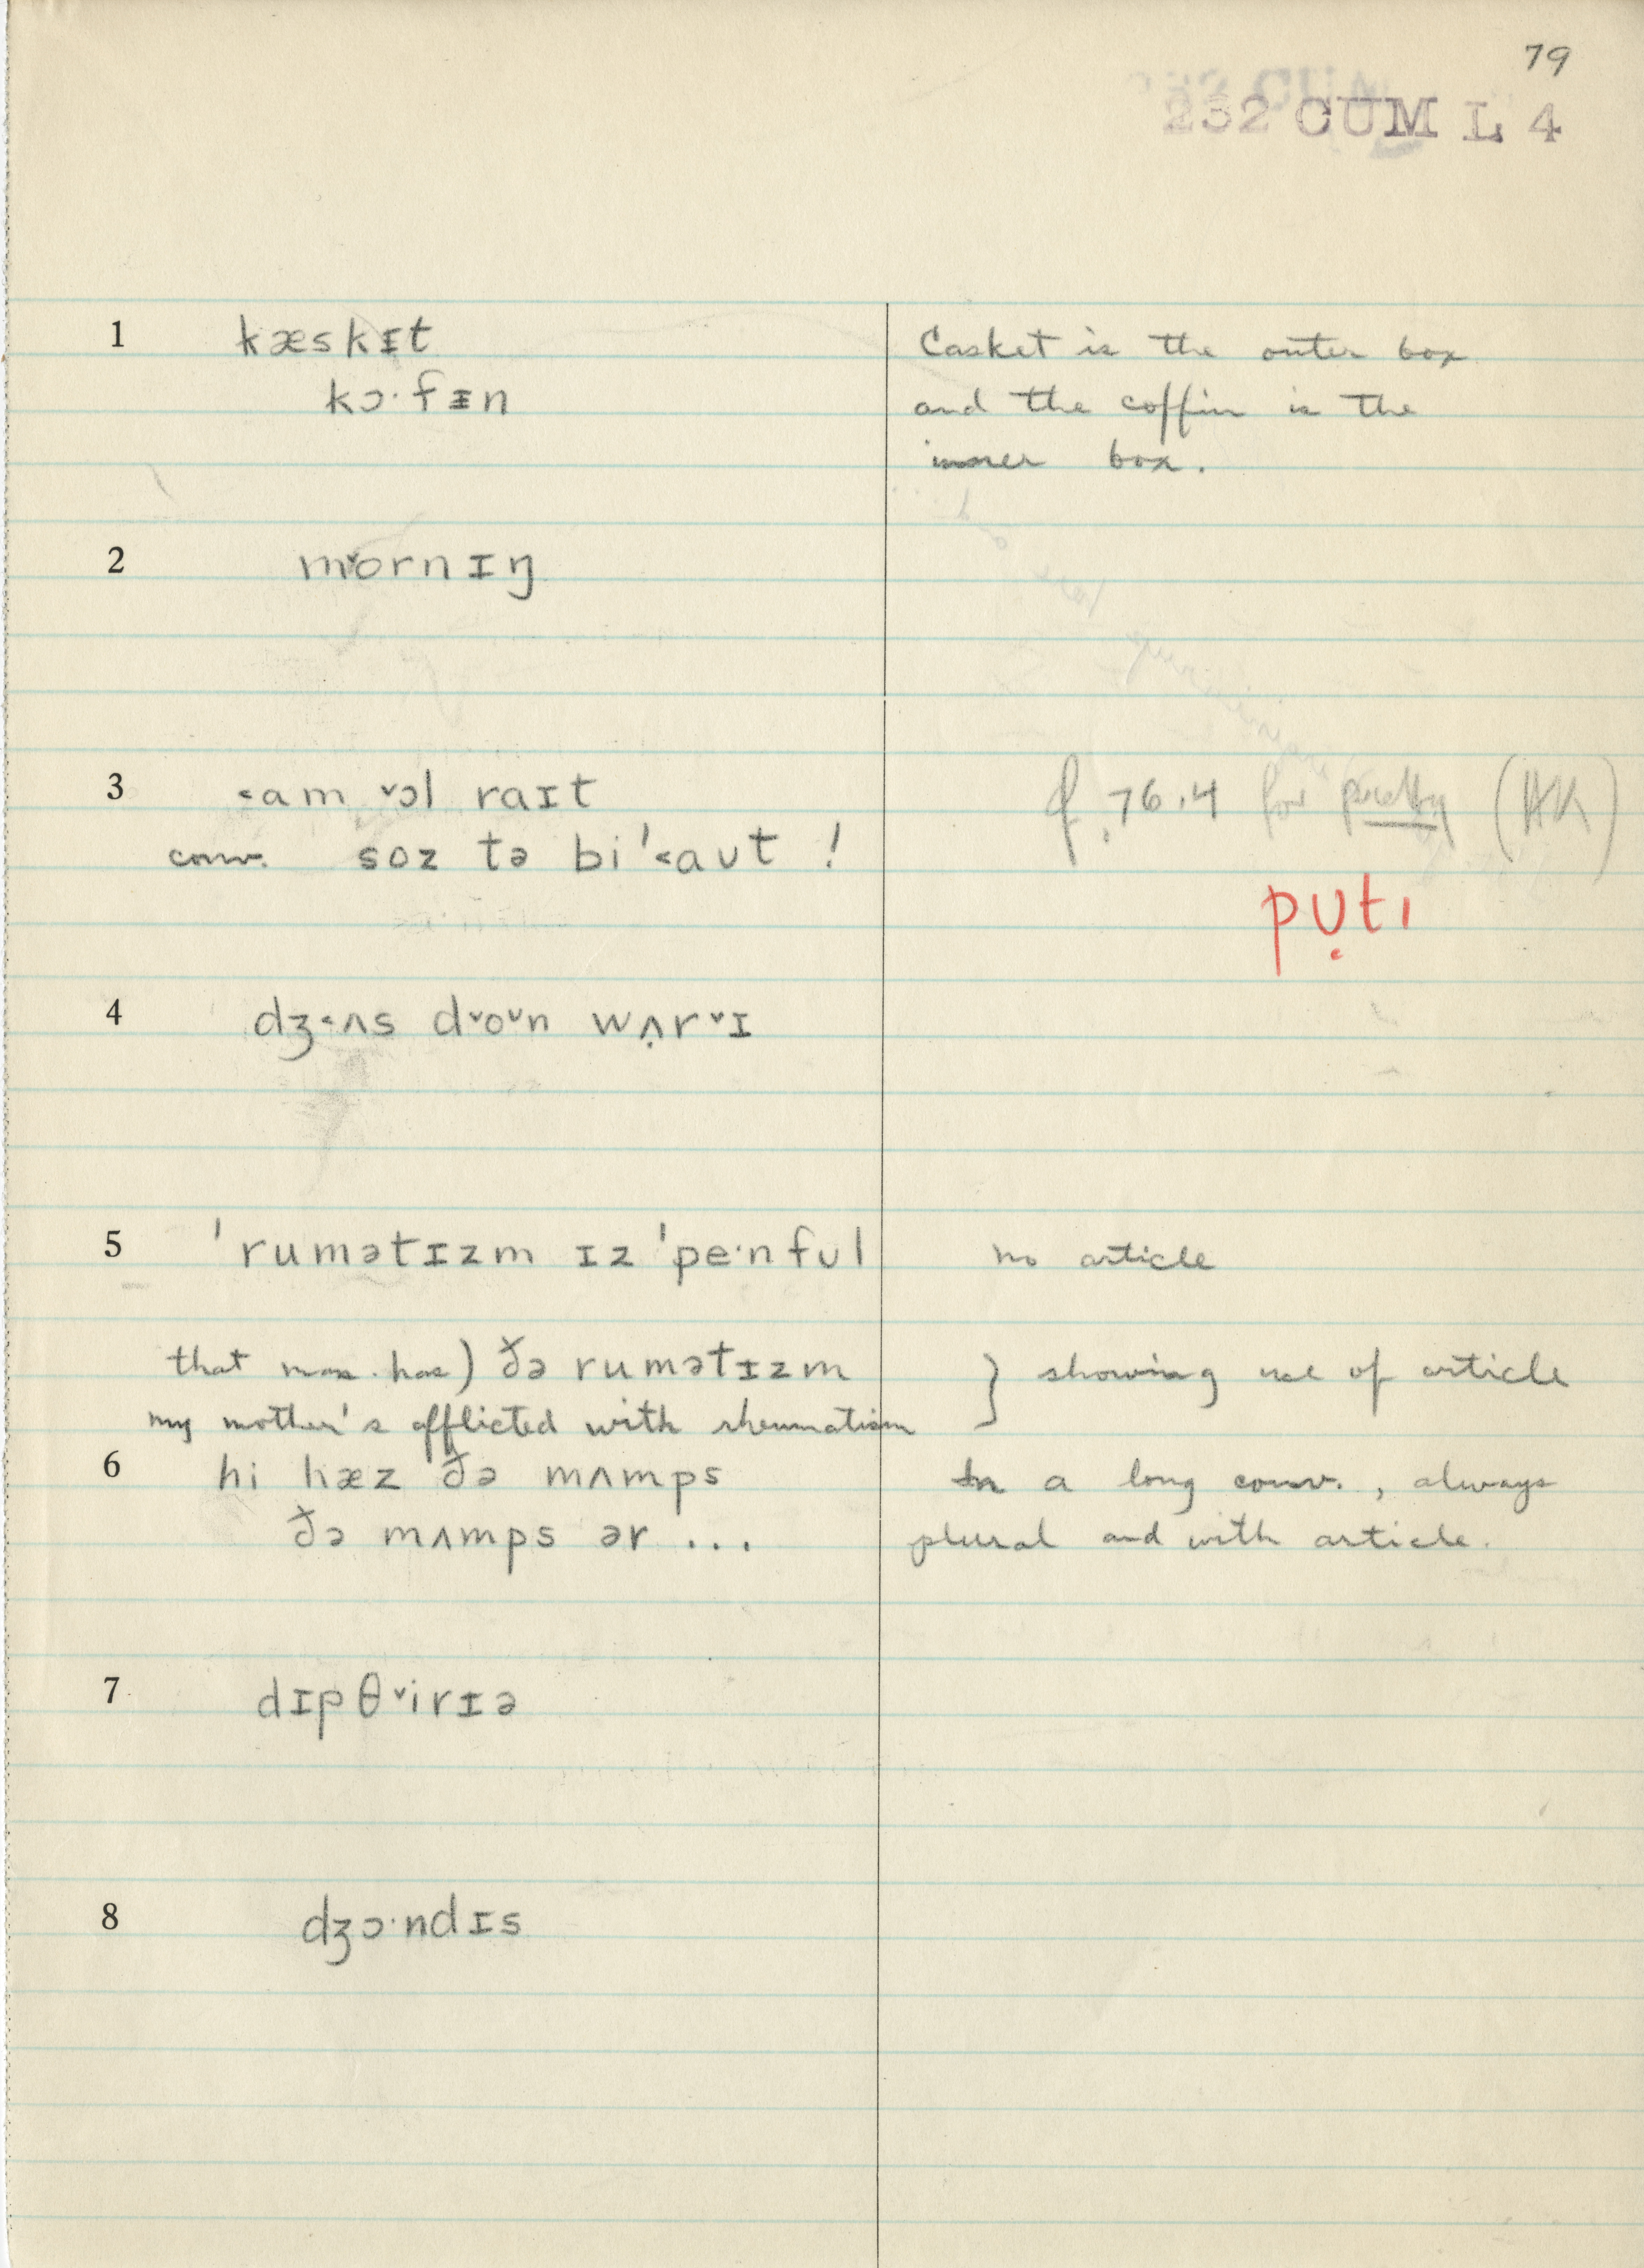 79
232 CUM L 4
1 kæskɪt
kɔ·fɪn
Casket is the outer box
and the coffin is the
inner box.
2 m˅ornɪŋ
3 ˂am ˅ɔl raɪt
conv. soz tə bi'˂aʊt !
cf. 76.4 for pretty (HK)
pʊ̣tɪ
4 dʒ˂ʌs d˅o˅n wʌ̣r˅ɪ
5 'rumətɪzm ɪz 'pe·nfʊl
no article
that man has) ðə rumətɪzm
my mother's afflicted with rheumatism
} showing use of article
6 hi hæz ðə mʌmps
ðə mʌmps ər ...
In a long conv., always
plural and with article.
7 dɪpθ˅irɪə
8 dʒɔ·ndɪs